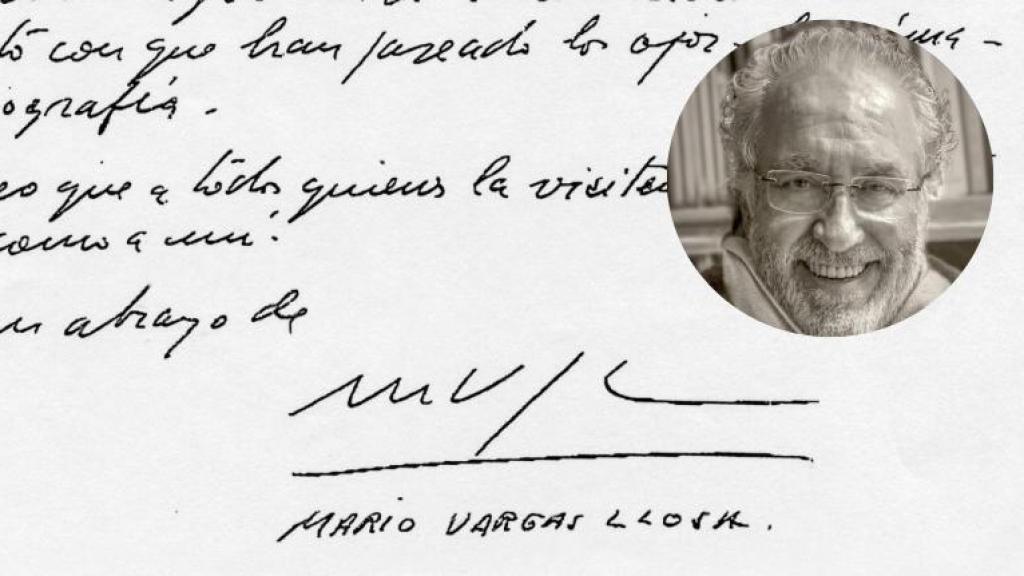 tó con que han paseado los ojos
ografía.
eo que a todos quienes la visiten
como a mí.
un abrazo de
MVLL
MARIO VARGAS LLOSA.